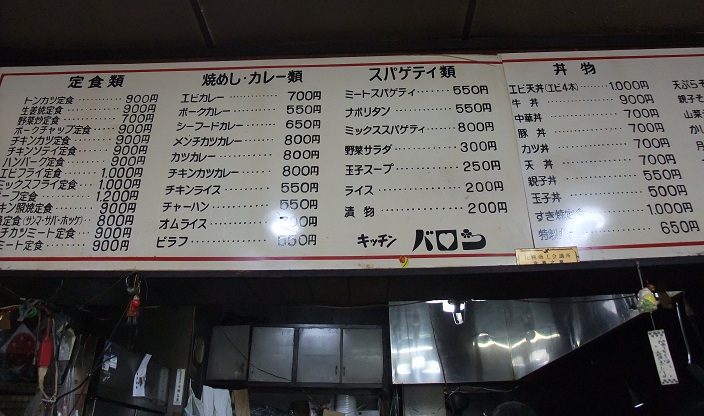 定食類
トンカツ定食 ………… 900円
生姜焼定食 ………… 900円
野菜炒定食 ………… 700円
ポークチャップ定食 …… 900円
チキンカツ定食 ……… 900円
チキンソテイ定食 …… 900円
ハンバーク定食 ……… 900円
エビフライ定食 …… 1,000円
ミックスフライ定食 …… 1,000円
定食 …… 1,200円
キン照焼定食 …… 900円
定食(サンマ・サバ・ホッケ) …… 900円
チカツミート定食 …… 900円
ミート定食 ………… 900円
焼めし・カレー類
エビカレー ………… 700円
ポークカレー ………… 550円
シーフードカレー ……… 650円
メンチカツカレー ……… 800円
カツカレー ………… 800円
チキンカツカレー ……… 800円
チキンライス ………… 550円
チャーハン ………… 550円
オムライス
ピラフ ………… 550円
スパゲテイ類
ミートスパゲティ ……… 550円
ナポリタン ………… 550円
ミックススパゲティ …… 800円
野菜サラダ ………… 300円
玉子スープ ………… 250円
ライス ………… 200円
漬物 ………… 200円
キッチン バロン
丼物
エビ天丼(エビ4本) …… 1,000円
牛丼 ………… 900円
中華丼 ………… 700円
豚丼 ………… 700円
カツ丼 ………… 700円
天丼 ………… 700円
親子丼 ………… 550円
玉子丼 ………… 500円
すき焼 …… 1,000円
特製 …… 650円
天ぷらそ
親子そ
山菜
かし
月